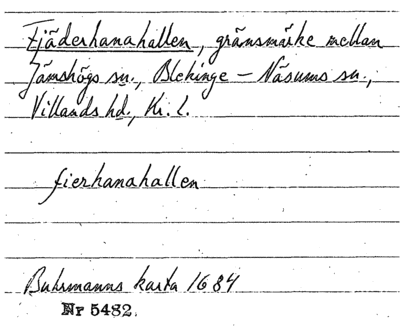 Fjäderhanahallen, gränsmärke mellan
Jämshögs sn., Blekinge – Näsums sn.,
Villands hd., Kr. l.
fierhanahallen
Buhrmanns karta 1684
Nr 5482.